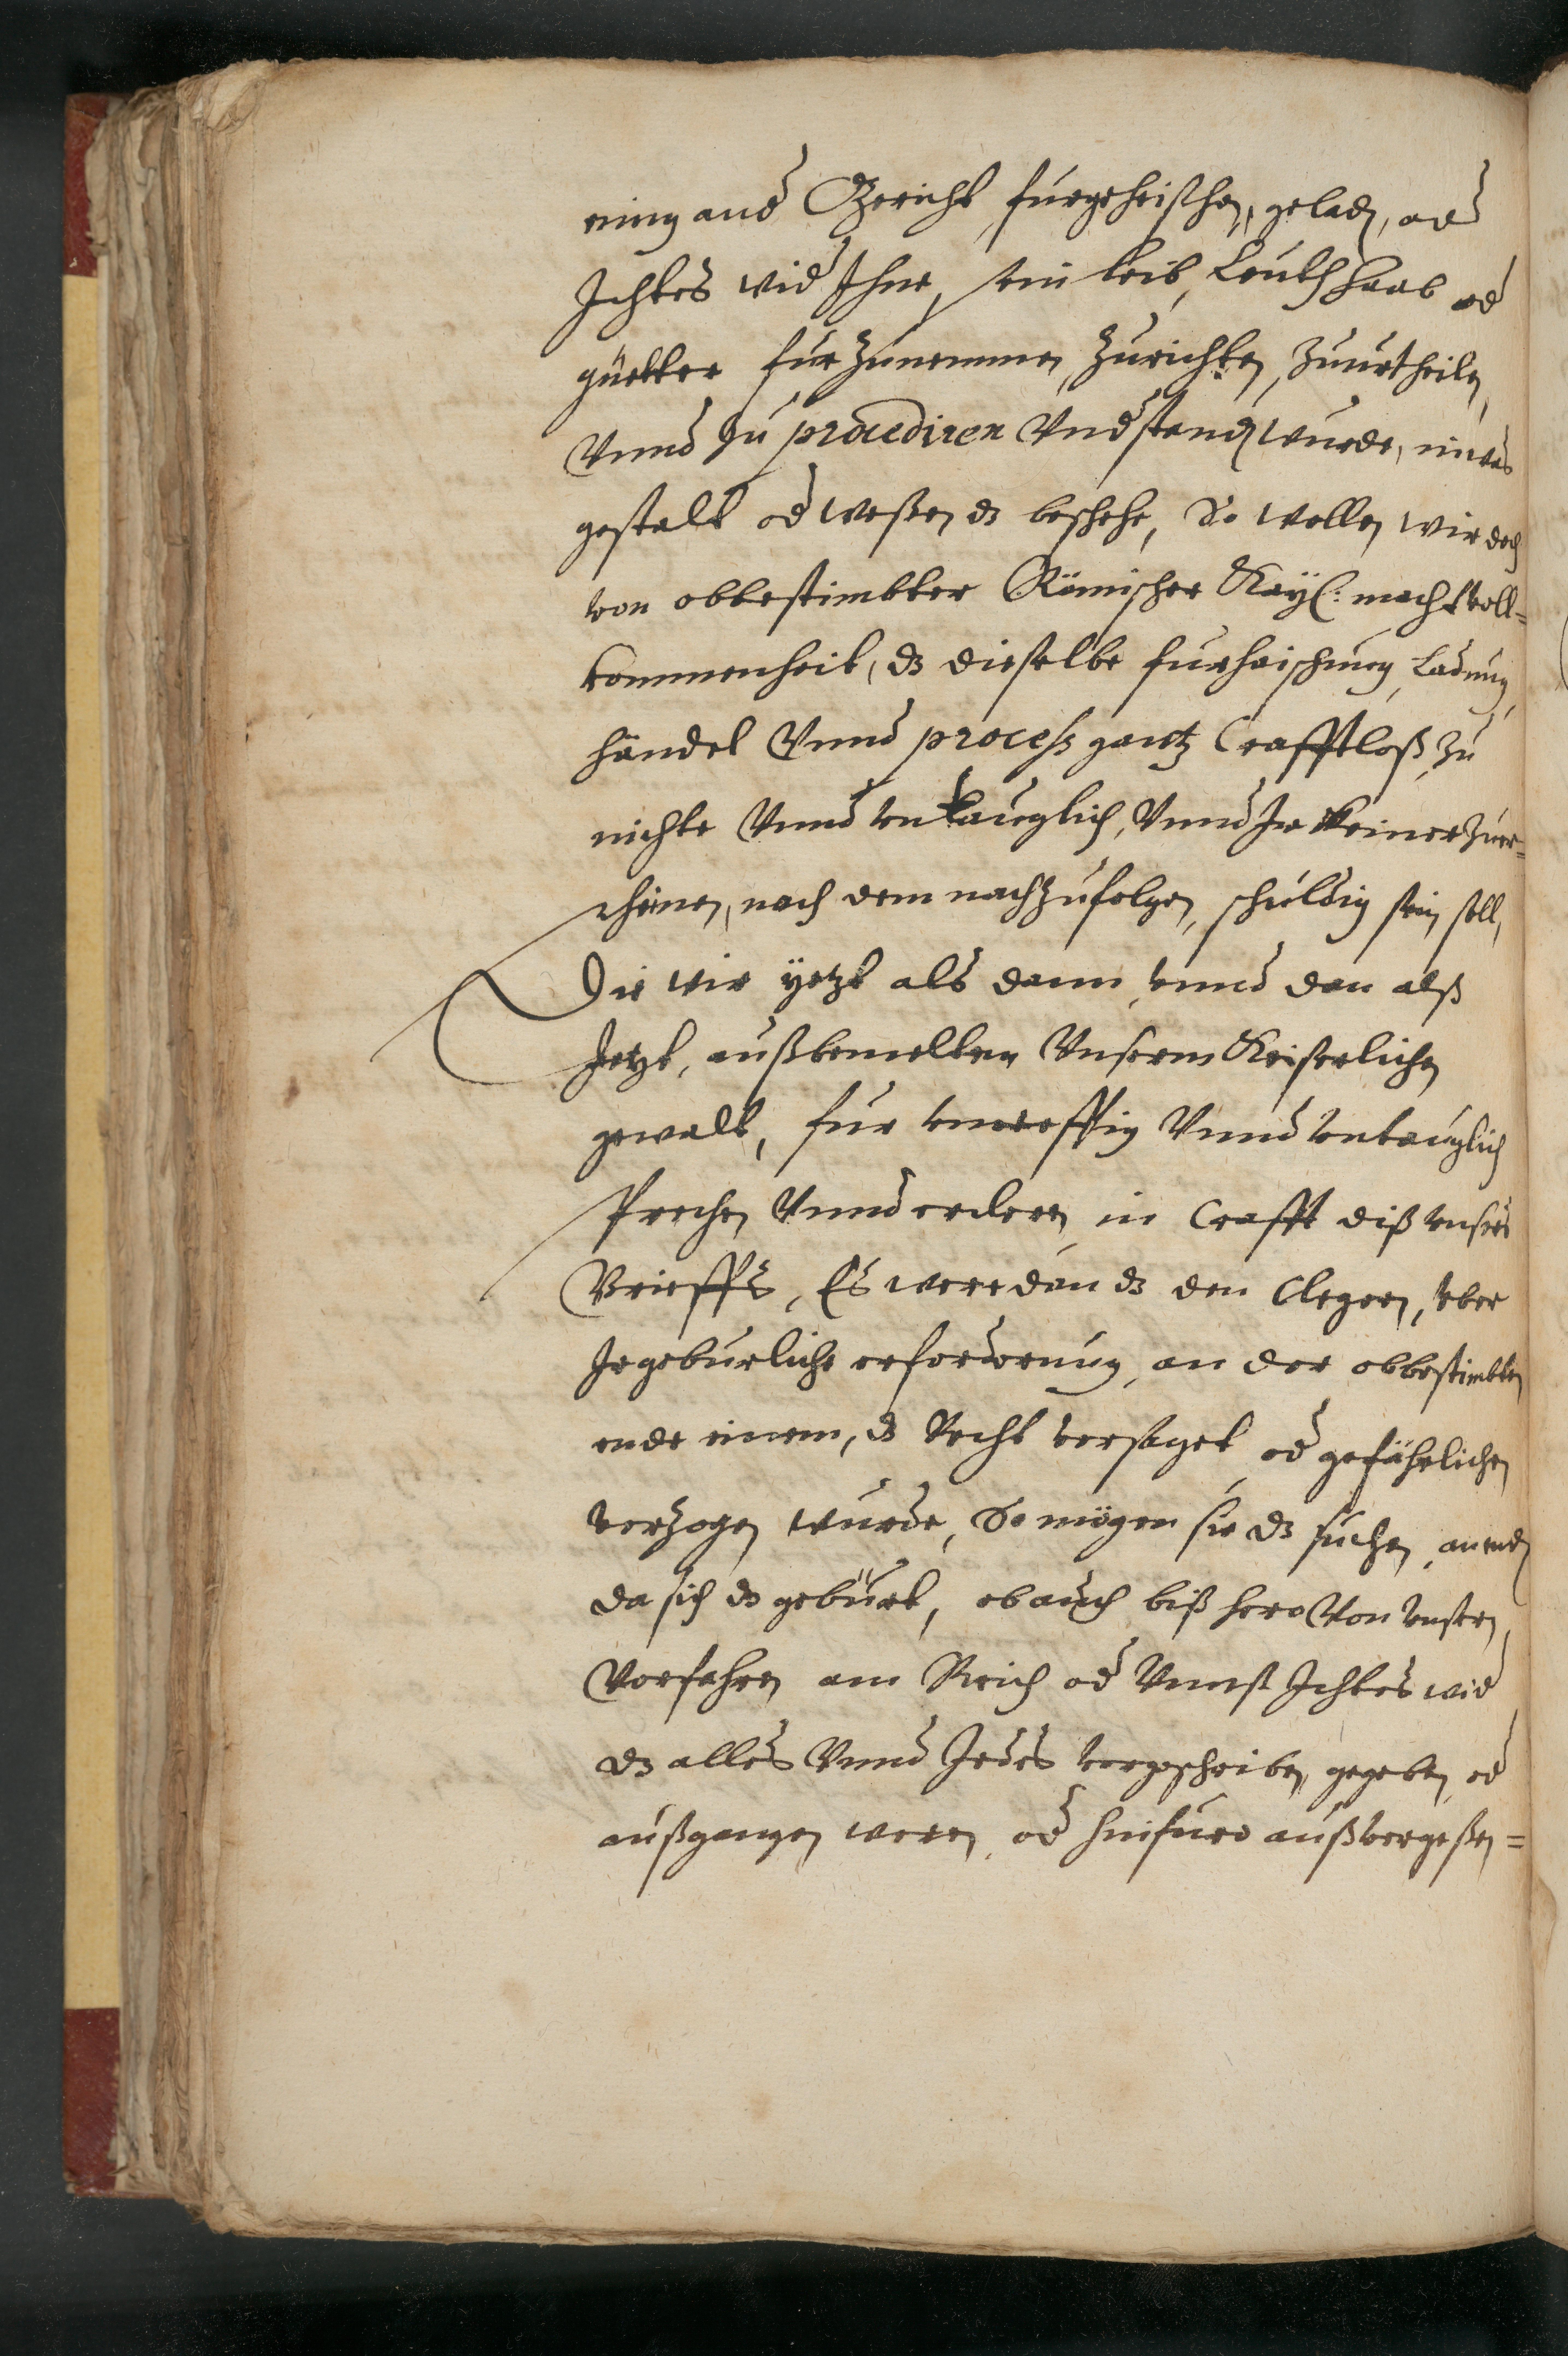 einig and Gericht furgeheischen, geladen, od
Ichtes wid Ihne, sein leib, Leuth haab od
güetter fur Zunemmen, Zurichten, Zuurtheilen,
Vnnd Zu procediren Vndstanden wurde, inwas
gestalt od weßen dz beschehe, So wollen wir doch
von obbestimbter Römischer Kaÿ: macht voll=
kommenheit, dz dieselbe furhaischung, Ladung,
händel Vnnd process gantz Crafftloß, Zu
nichte Vnnd vntauglich, Vnnd Ir keiner Zuer=
scheinen, noch dem nachzufolgen, schuldig sein soll,
Die wir ÿetzt als dann, vnnd dan alß
Jetzt, auß bemelten Vnserm Keiserlichen
gewalt, fur vncreffftig Vnnd vntauglich
sprechen Vnnd erkleren, in Crafft diß vnsers
Brieffs, Es were dan dz den Clegern, vber
Ir geburliche erforderung, an der obbestimbten
ende einem, dz Recht versaget, od gefährlichen
verzogen wurde, So mögen sie dz suchen, an enden
da sich dz gebürt, ob auch biß hero Von vnsern,
Vorfahren am Reich od Vnnß Ichtes wid
dz alles Vnnd Jedes vorgeschriben, gegeben, od
außgangen weren, od hinfuro auß vergeßen=